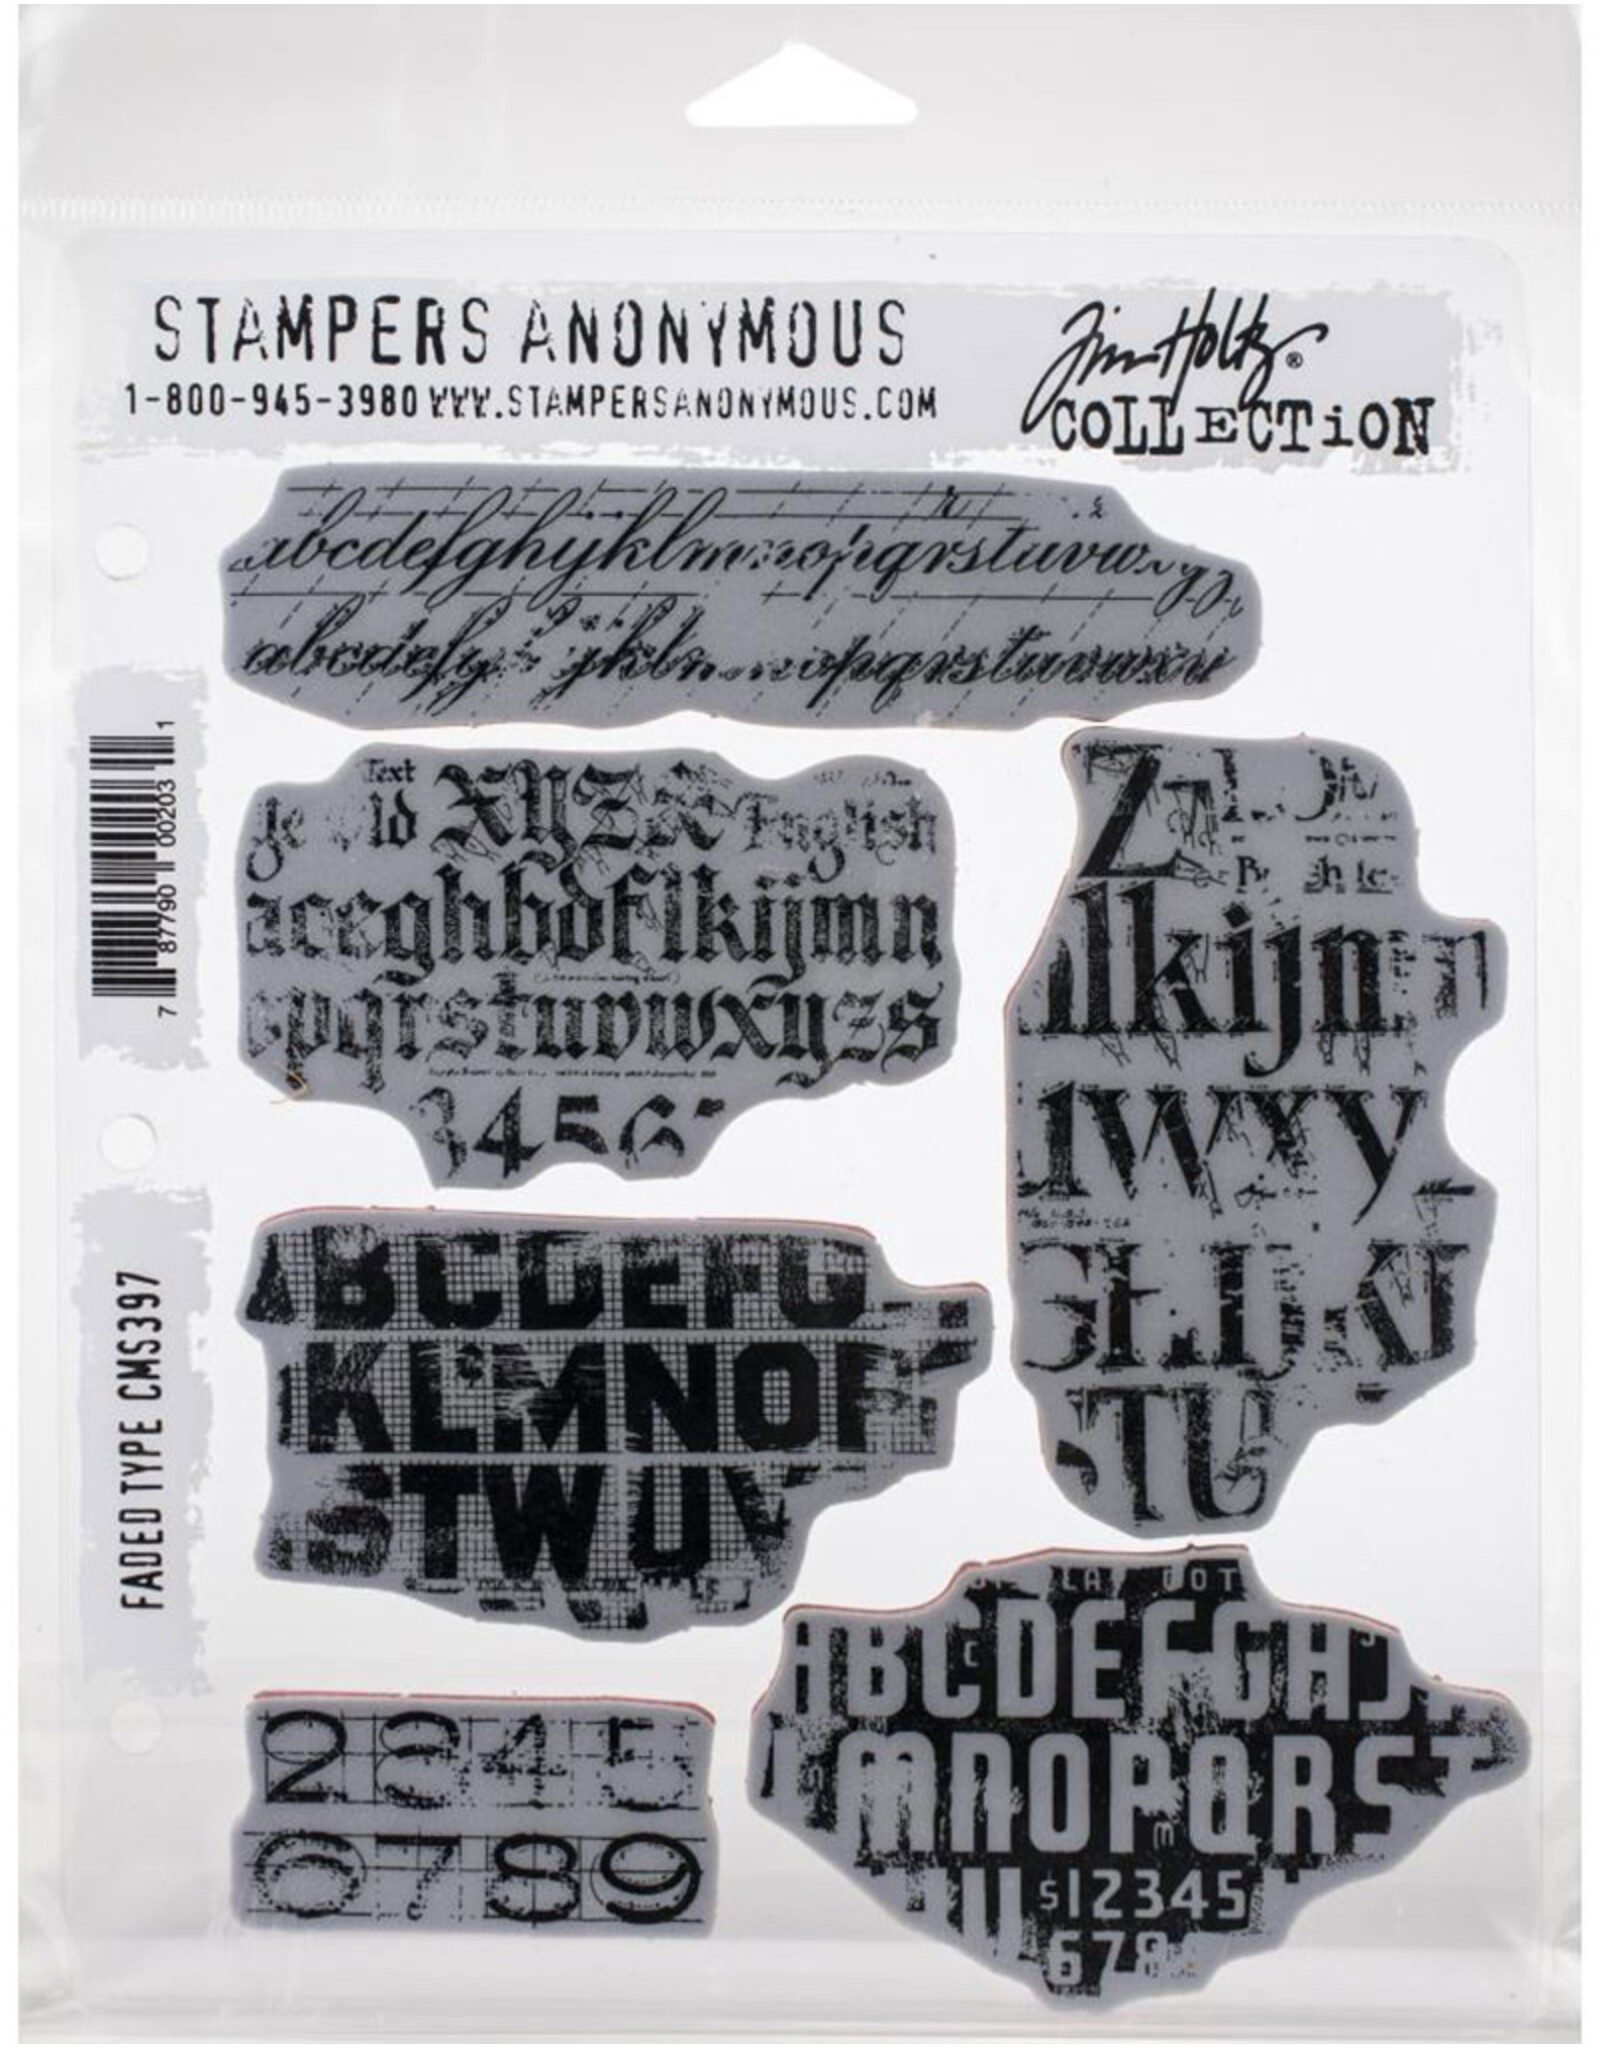 STAMPERS ANONYMOUS
1-800-945-3980 WWW.STAMPERSANONYMOUS.COM
Tim Holtz®
COLLECTION
abcdefghijklmnopqrstuvw
Text
XYZ
English
aceghbdflkijmn
pqrstuvwxyzs
3456
Z
lkijn
wxy
GHIJK
TU
ABCDEFG
KLMNO
STWUV
ABCDEFGHJ
MNOPQRST
$12345
678
2345
6789
7 87790 00203 1
FADED TYPE CMS397